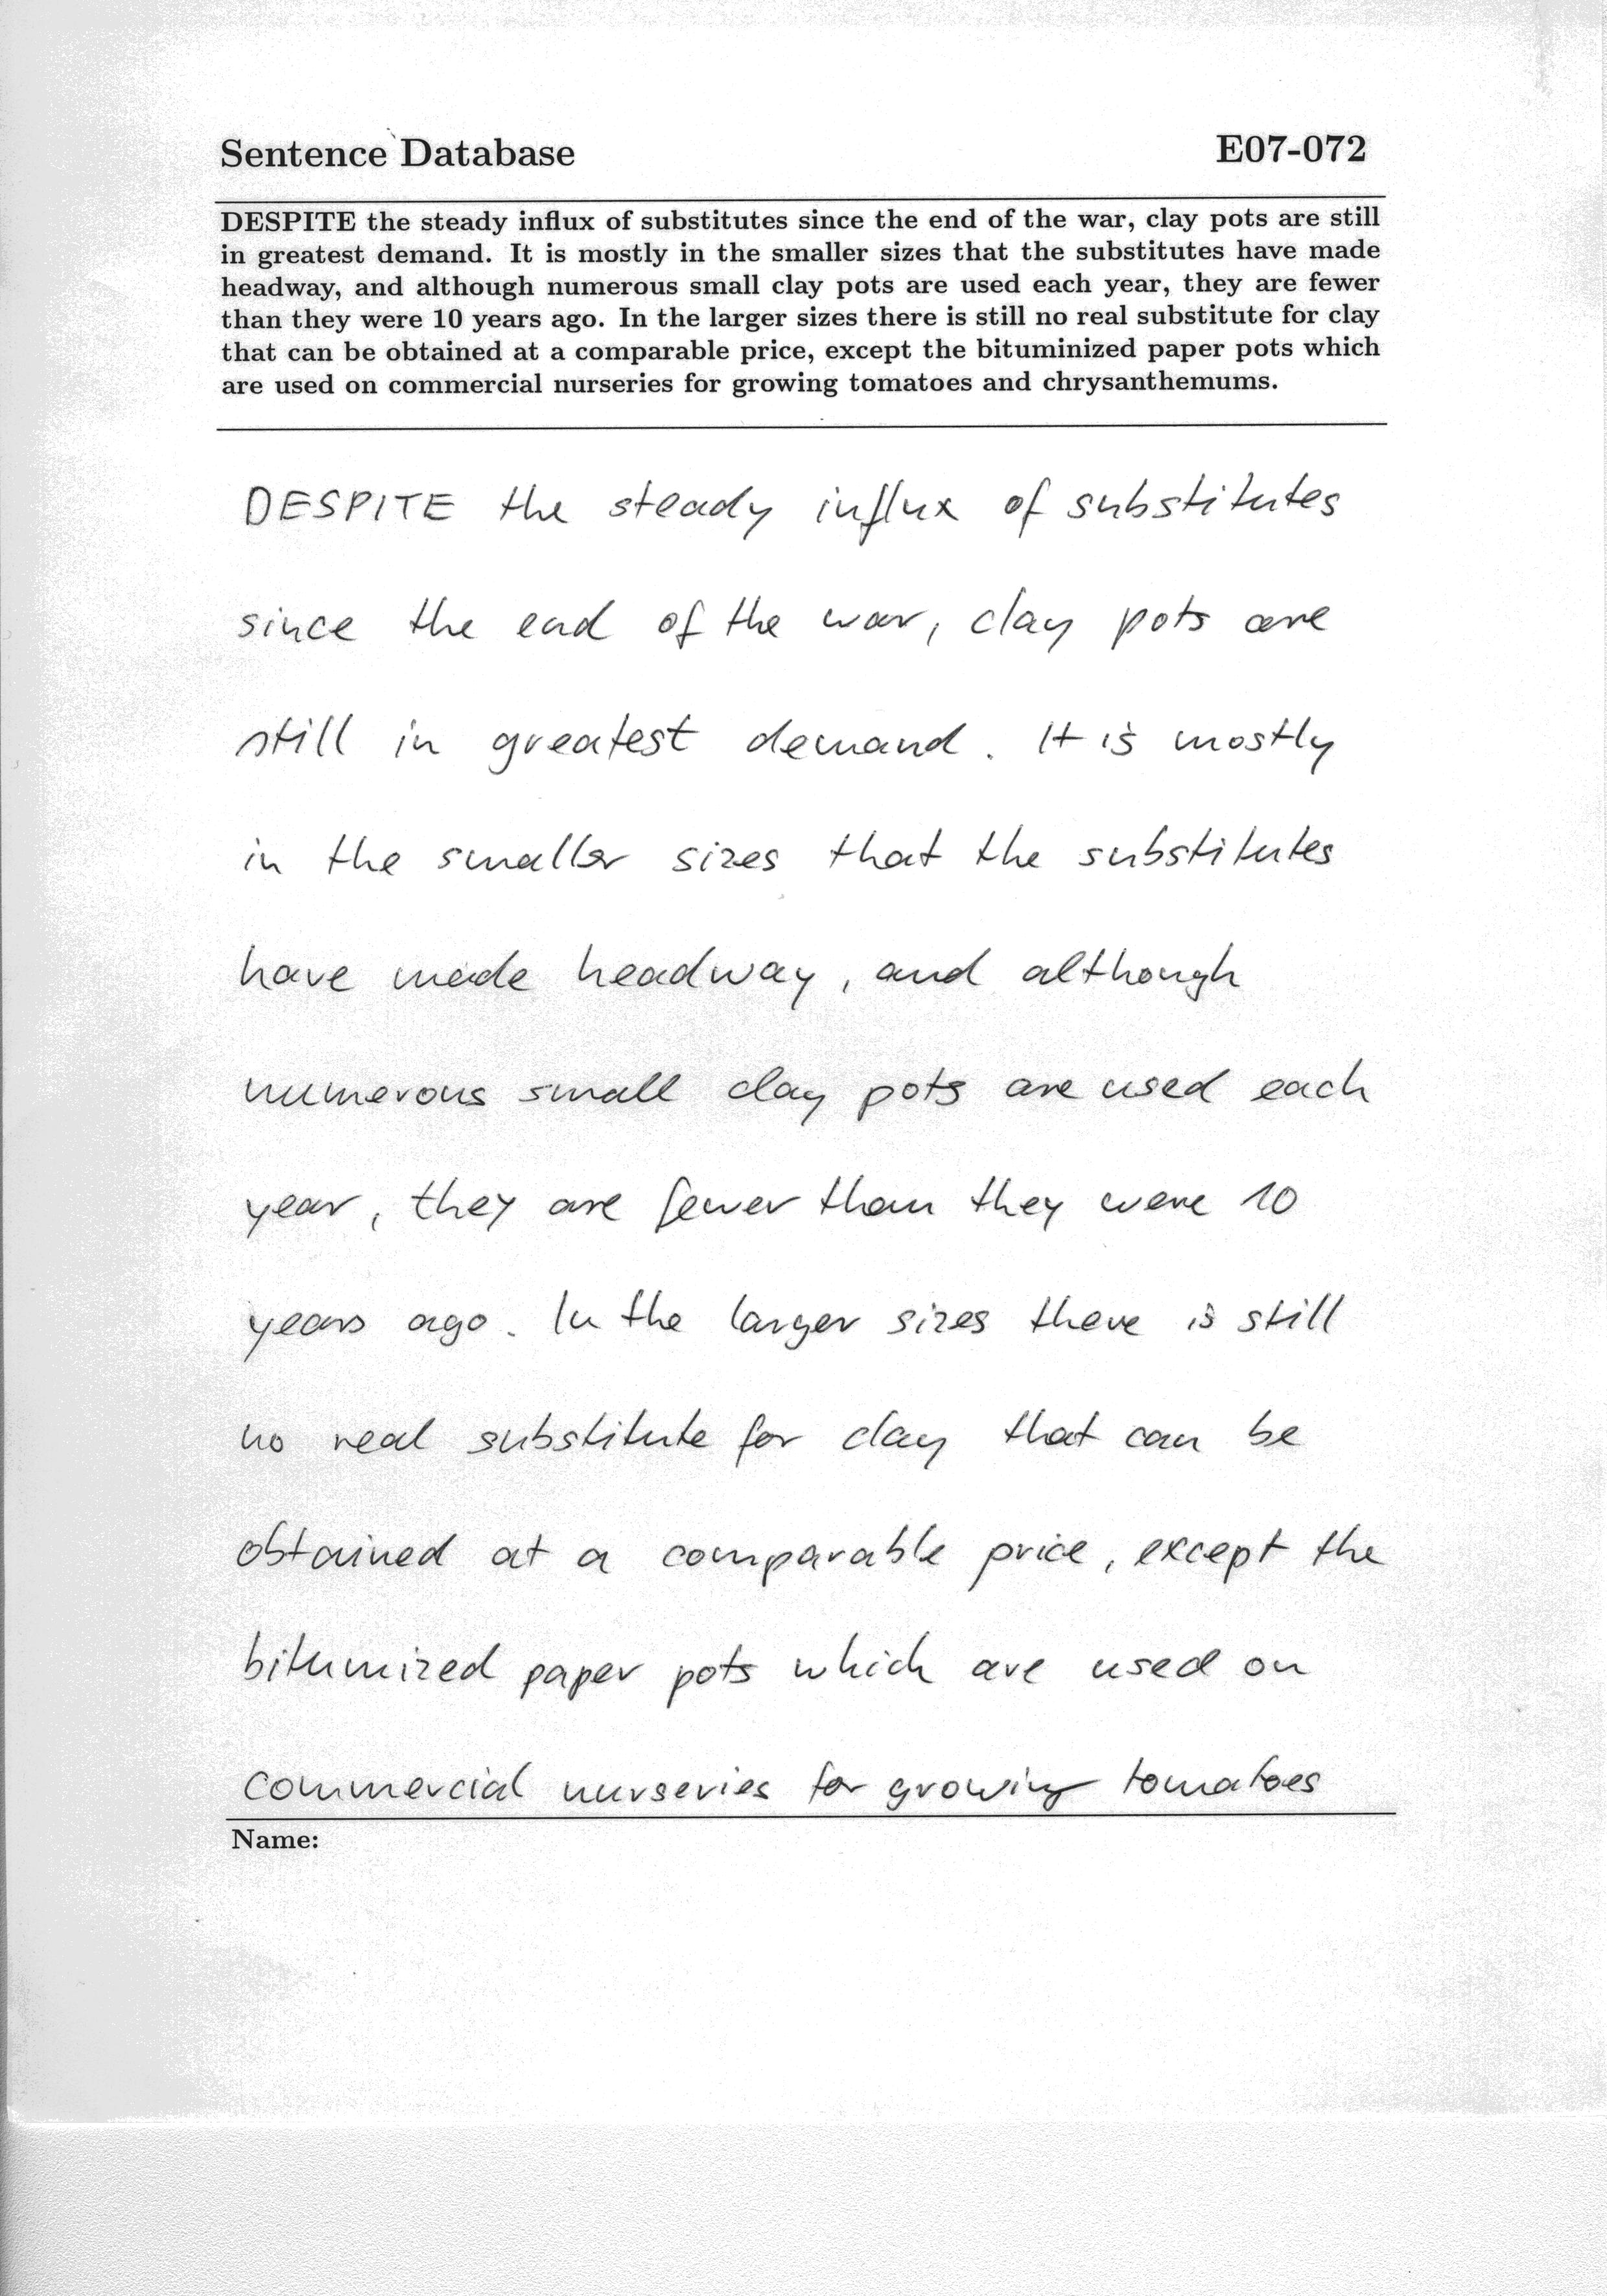 Sentence Database E07-072
DESPITE the steady influx of substitutes since the end of the war, clay pots are still
in greatest demand. It is mostly in the smaller sizes that the substitutes have made
headway, and although numerous small clay pots are used each year, they are fewer
than they were 10 years ago. In the larger sizes there is still no real substitute for clay
that can be obtained at a comparable price, except the bituminized paper pots which
are used on commercial nurseries for growing tomatoes and chrysanthemums.
DESPITE the steady influx of substitutes
since the end of the war, clay pots are
still in greatest demand. It is mostly
in the smaller sizes that the substitutes
have made headway, and although
numerous small clay pots are used each
year, they are fewer than they were 10
years ago. In the larger sizes there is still
no real substitute for clay that can be
obtained at a comparable price, except the
bitumized paper pots which are used on
commercial nurseries for growing tomatoes
Name: